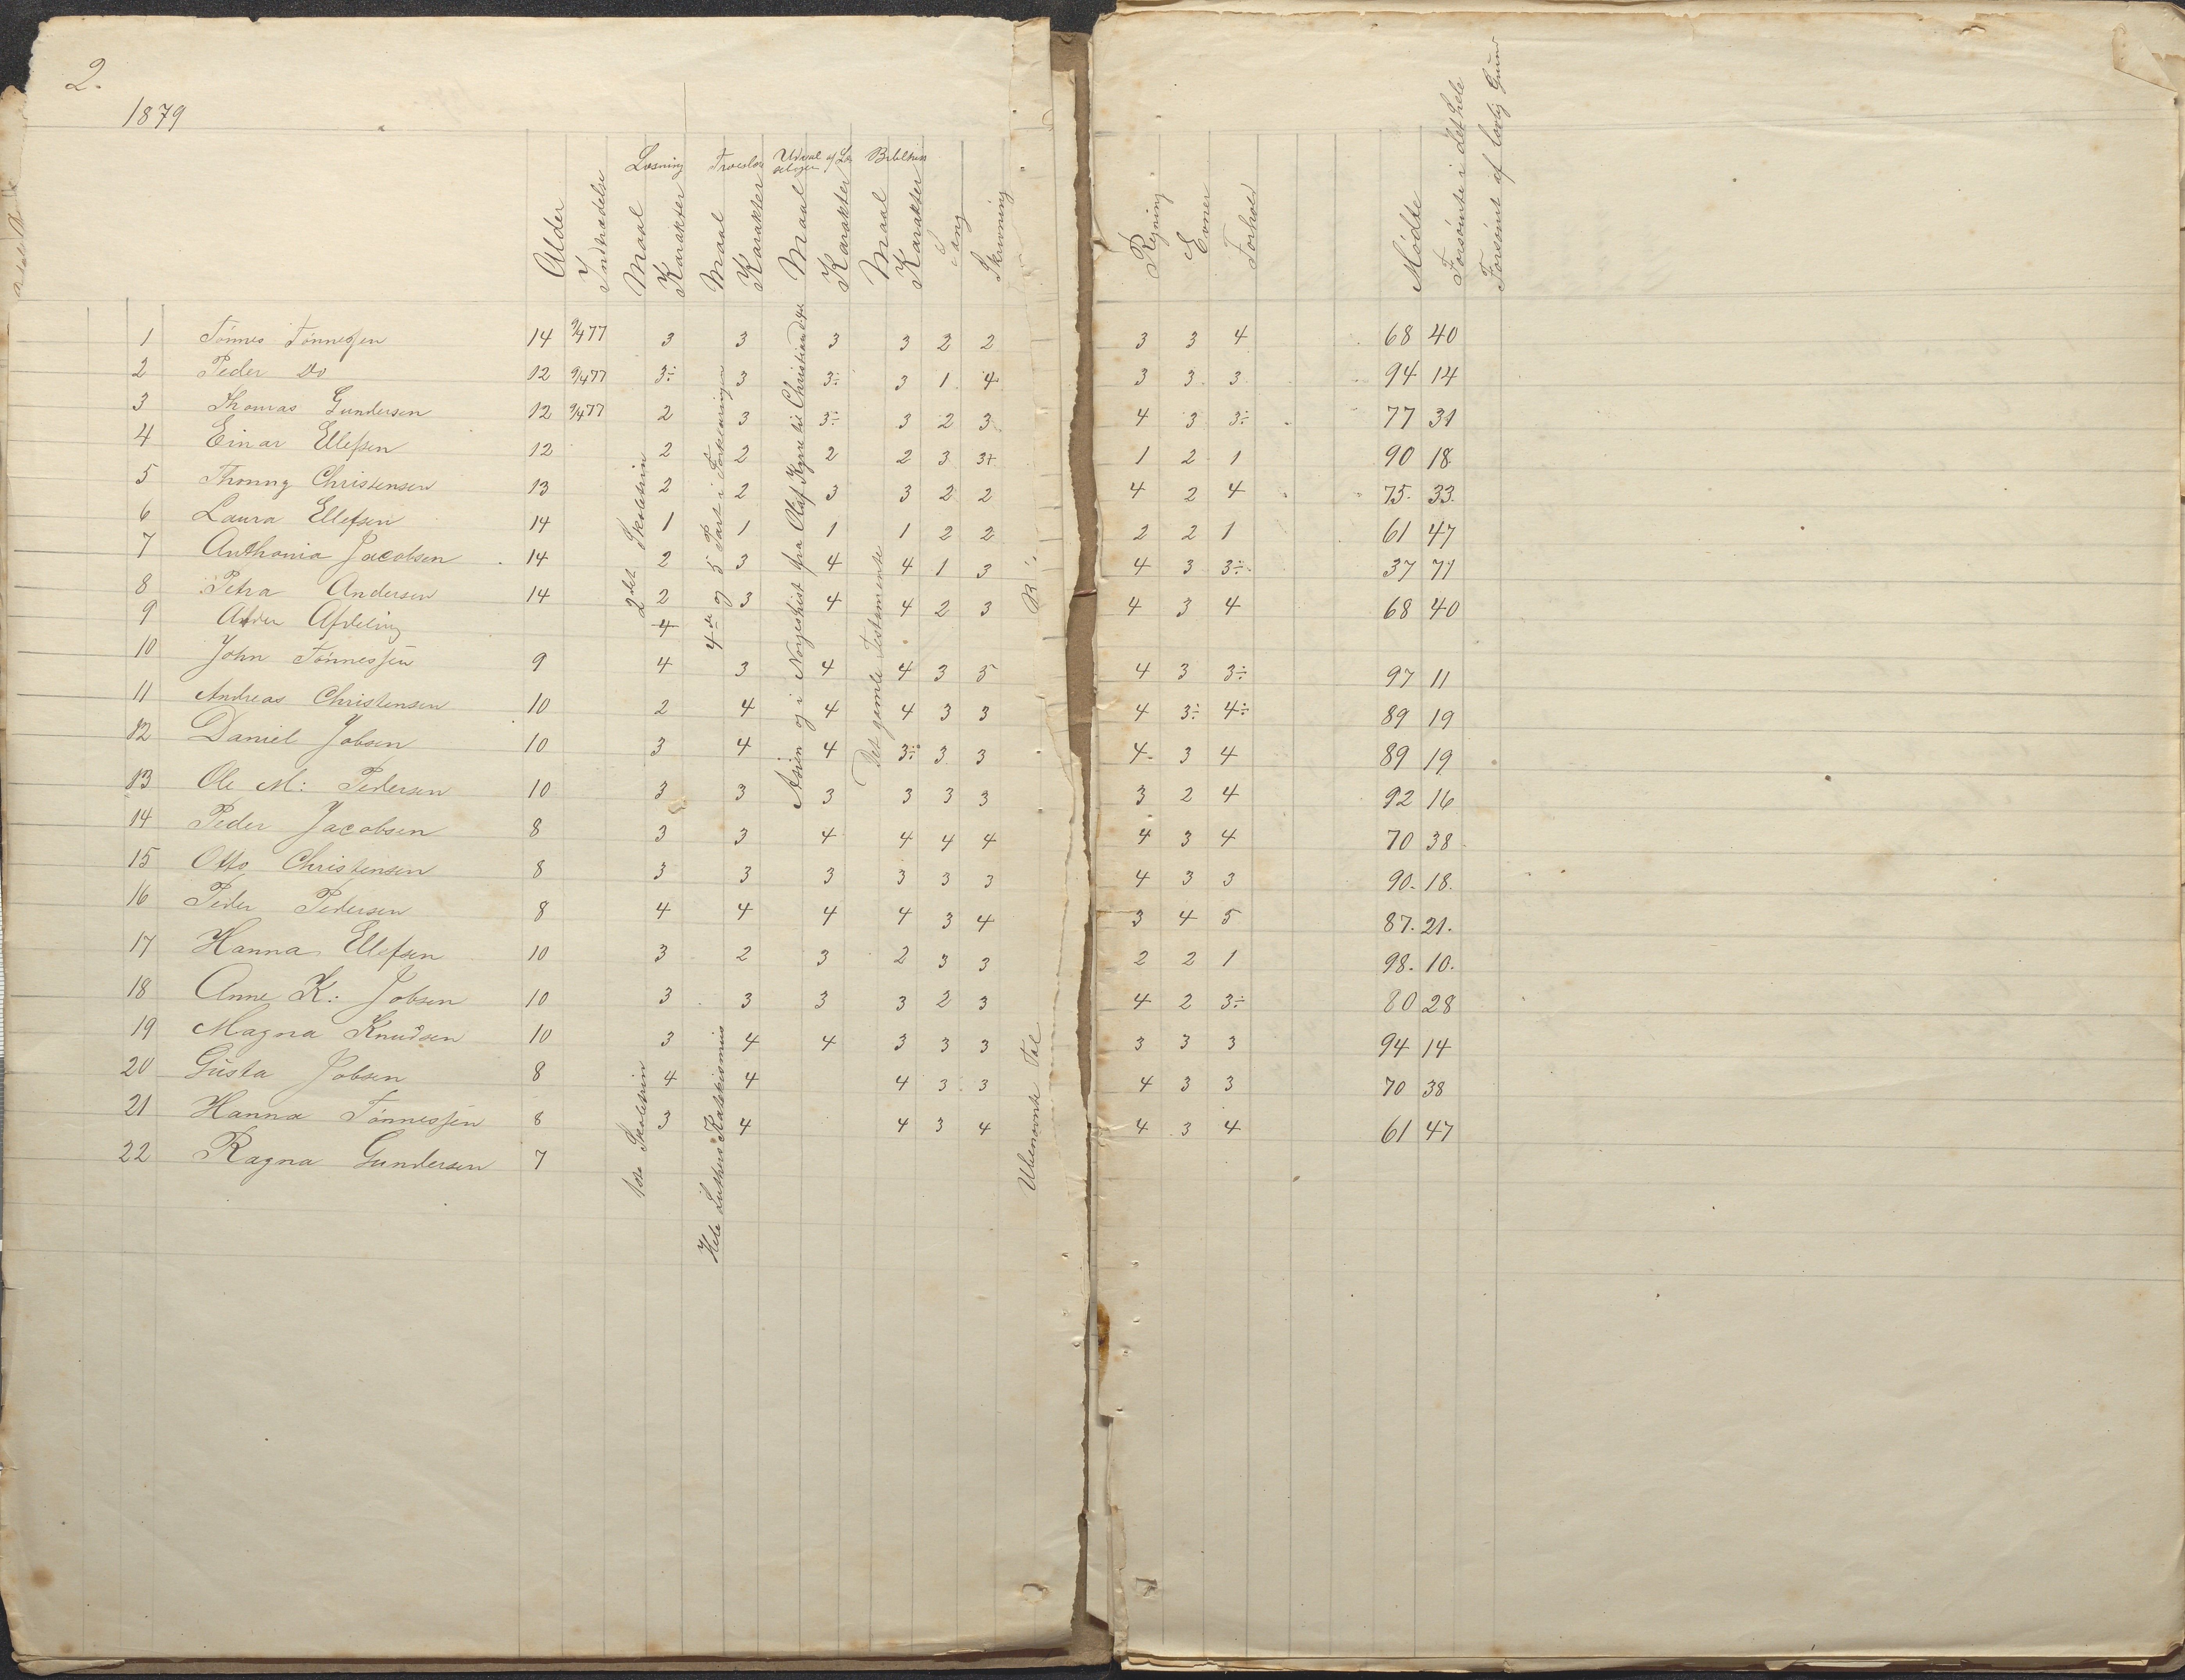 2.
1879
Læsning Troeslær Udval af Læ Bibelhis
Alder Indtrædelse Maal Karakter Maal Karakter Maal Karakter Maal Karakter Sang Skrivning Regning Evner Forhold Mødte Forsømte i det hele Forsømt af lovlig Grund
1 Tønnes Tønnessen 14 9/4 77 3 3 3 3 2 2 3 3 4 68 40
2 Peder Do 12 9/4 77 3÷ 3 3÷ 3 1 4 3 3 3 94 14
3 Thomas Gundersen 12 9/4 77 2 3 3÷ 3 2 3 4 3 3÷ 77 31
4 Einar Ellefsen 12 2 2 2 2 3 3+ 1 2 1 90 18
5 Thonny Christensen 13 2 2 3 3 2 2 4 2 4 75. 33.
6 Laura Ellefsen 14 1 1 1 1 2 2 2 2 1 61 47
7 Anthonia Jacobsen 14 2 3 4 4 1 3 4 3 3÷ 37 71
8 Petra Andersen 14 2 3 4 4 2 3 4 3 4 68 40
9 Anden Afdeling 4
10 John Tønnessen 9 4 3 4 4 3 5 4 3 3÷ 97 11
11 Andreas Christensen 10 2 4 4 4 3 3 4 3÷ 4÷ 89 19
12 Daniel Jobsen 10 3 4 4 3÷ 3 3 4 3 4 89 19
13 Ole M: Pedersen 10 3 3 3 3 3 3 3 2 4 92 16
14 Peder Jacobsen 8 3 3 4 4 4 4 4 3 4 70 38
15 Otto Christensen 8 3 3 3 3 3 3 4 3 3 90. 18.
16 Peder Pedersen 8 4 4 4 4 3 4 3 4 5 87. 21.
17 Hanna Ellefsen 10 3 2 3 2 3 3 2 2 1 98. 10.
18 Anne K: Jobsen 10 3 3 3 3 2 3 4 2 3÷ 80 28
19 Magna Knudsen 10 3 4 4 3 3 3 3 3 3 94 14
20 Gusta Jobsen 8 4 4 4 3 3 4 3 3 70 38
21 Hanna Tønnessen 8 3 4 4 3 4 4 3 4 61 47
22 Ragna Gundersen 7
2det Skoletrin
4de og 5 Part i Forklaringen
Asien og i Norgeshist fra Olaf Kyrre til Christian d 4de
Det gamle Testamente
1ste Skoletrin
Hele Luthers Katekismus
Ubenævnte Tal